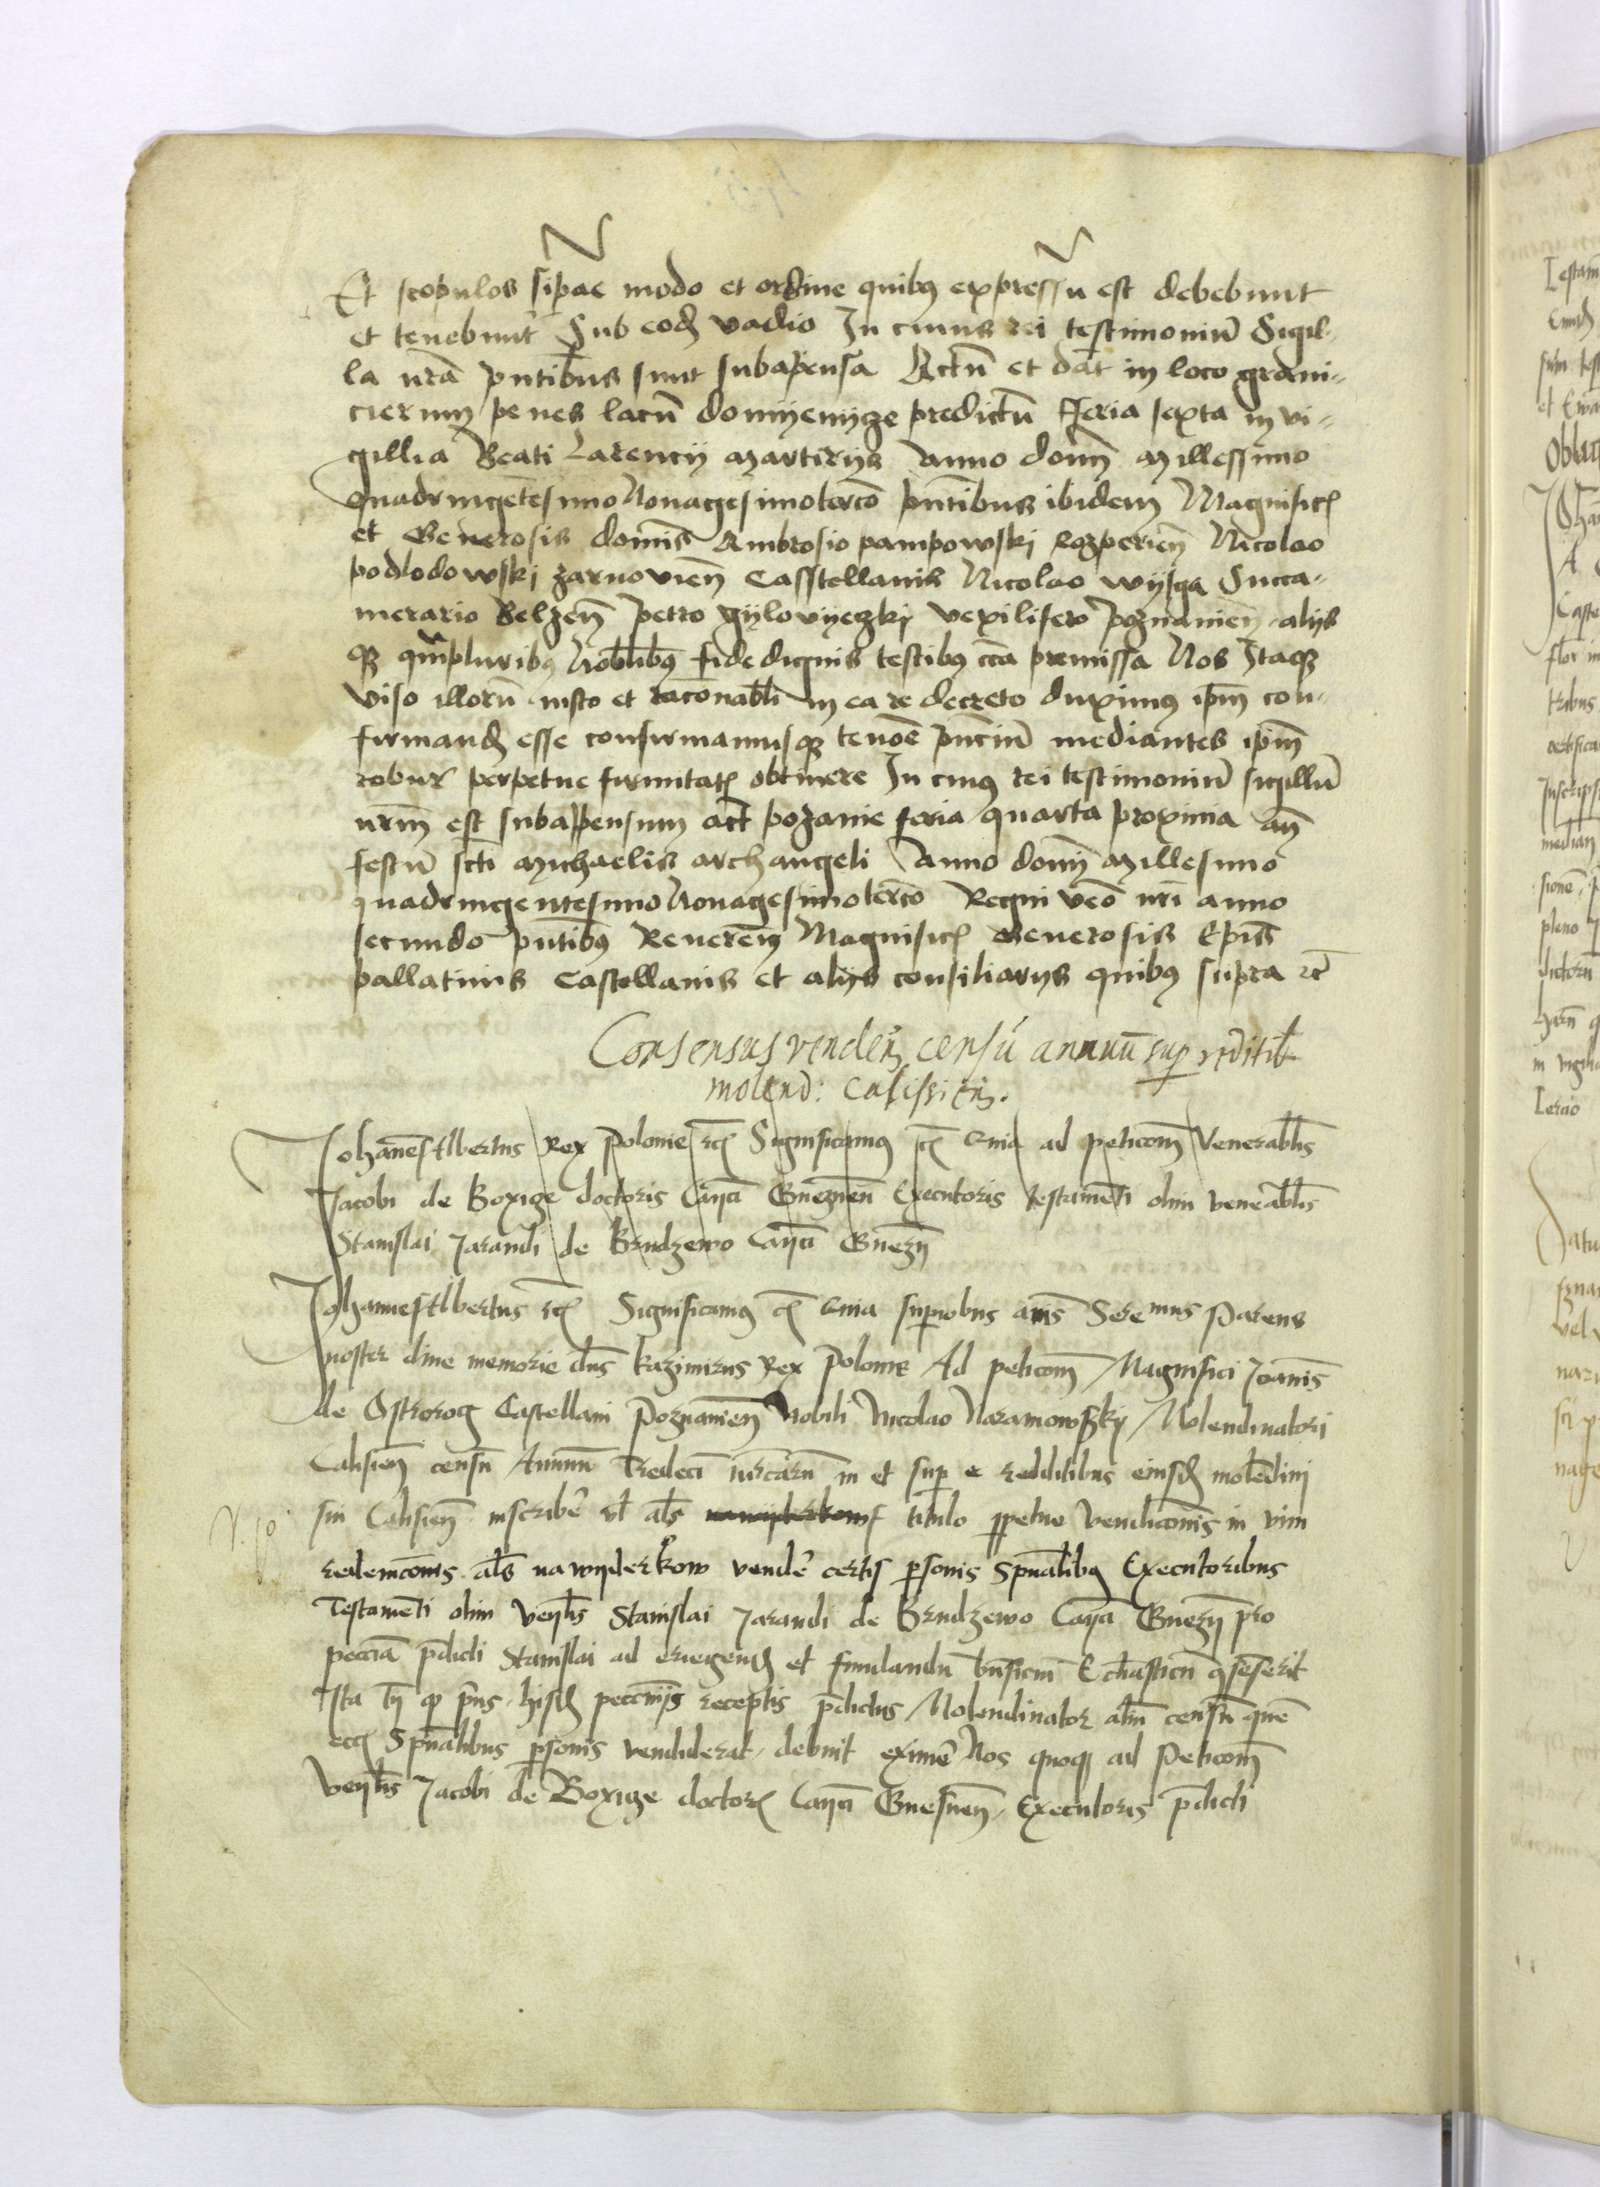 Et scopulos sipac modo et ordine quibus expressu est debebunt
et tenebunt Sub eod vadio In cuius rei testimoniu Sigil-
la nra pntibus sunt subapensa Actu et dat in loco grani-
cierum penes lacu predictu fferia sexta in vi-
gillia Beati Larencij martirys Anno domi Millessimo
quadringetesimo Nonagesimoterco pntibus ibidem Magnific
et Generosis domis Ambrosio pampowski Rozperien Nicolao
podlodowski zarnovien Casstellanis Nicolao wijsga Succa-
merario Belzen petro vexilifero poznanien alijs
q qmpluribus Noblibus fide dignis testibus cca premissa Nos Itaq
viso illoru iusto et raconabli in ea re decreto duximus ipm con-
firmand esse confirmamusq tenoe pnciu mediantes ipm
robur perpetue firmitatis obtinere In cuius rei testimoniu sigillu
nrm est subapensum act poznanie feria quarta proxima an
festu scti Michaelis archangeli Anno domi Millesimo
quadringentesimo Nonagesimoterco Regni veo nri anno
secundo pntibus Reveren Magnific Generosis Epis
pallatinis Castellanis et alijs consiliarys quibus supra rc
Consensus venden censu annuu sup redditib
molend: Calissien.
Johanes Albertus Rex Polonie rc Significamus rc Quia ad peticom Venerablis
Jacobi de Boxize doctoris Canci Gneznen Executoris testamenti olim veneablis
Stanislai Jarandi de Brudzewo Canci Gnezn
Johannes Albertus rc Significamus rc Quia superiobus anis Serenmus Parens
noster dive memorie dns Kazimirus Rex Polonie Ad peticom Magnifici Joanis
de Ostrorog Castellani Poznanien Nobili Nicolao Naramowszkij Molendinatori
Calisien censu Annuu Tredeci mrcaru in et sup e redditibus eiusd molendini
sui Calisien inscribe vl als titulo ppetue vendiconis in vim
redemconis als na wyderkow vende certis psonis Spualibus Executoribus
Testamenti olim Venlis Stanislai Jarandi de Brudzewo Canci Gnezn pro
peccia pdicti Stanislai ad eriegend et fundandu bnficiu Ecliasticu qsenserit
Ista tn q pns hisd peccunijs receptis pdictus Molendinator alm censu que
Spualibus psonis vendiderat debuit exime Nos quoq ad Peticom
Venlis Jacobi de Boxize doctor Canci Gnesnen Executoris pdicti